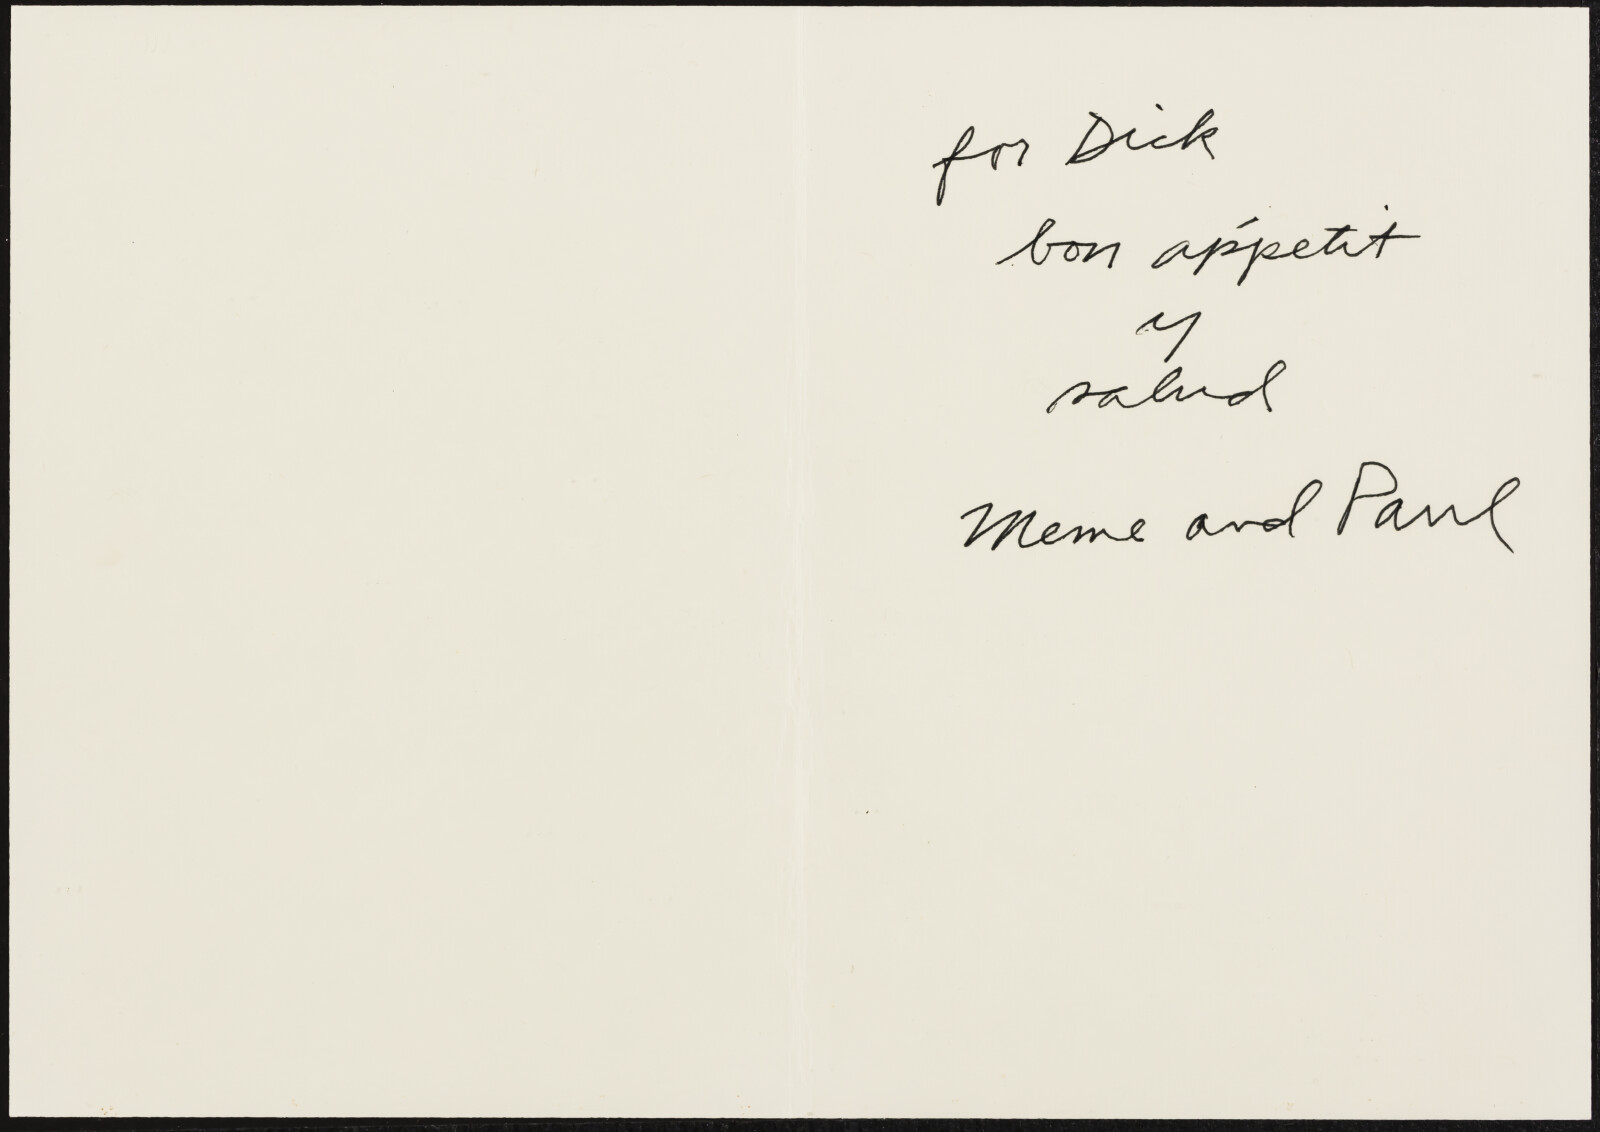 for Dick
bon appetit
y
salud
Meme and Paul